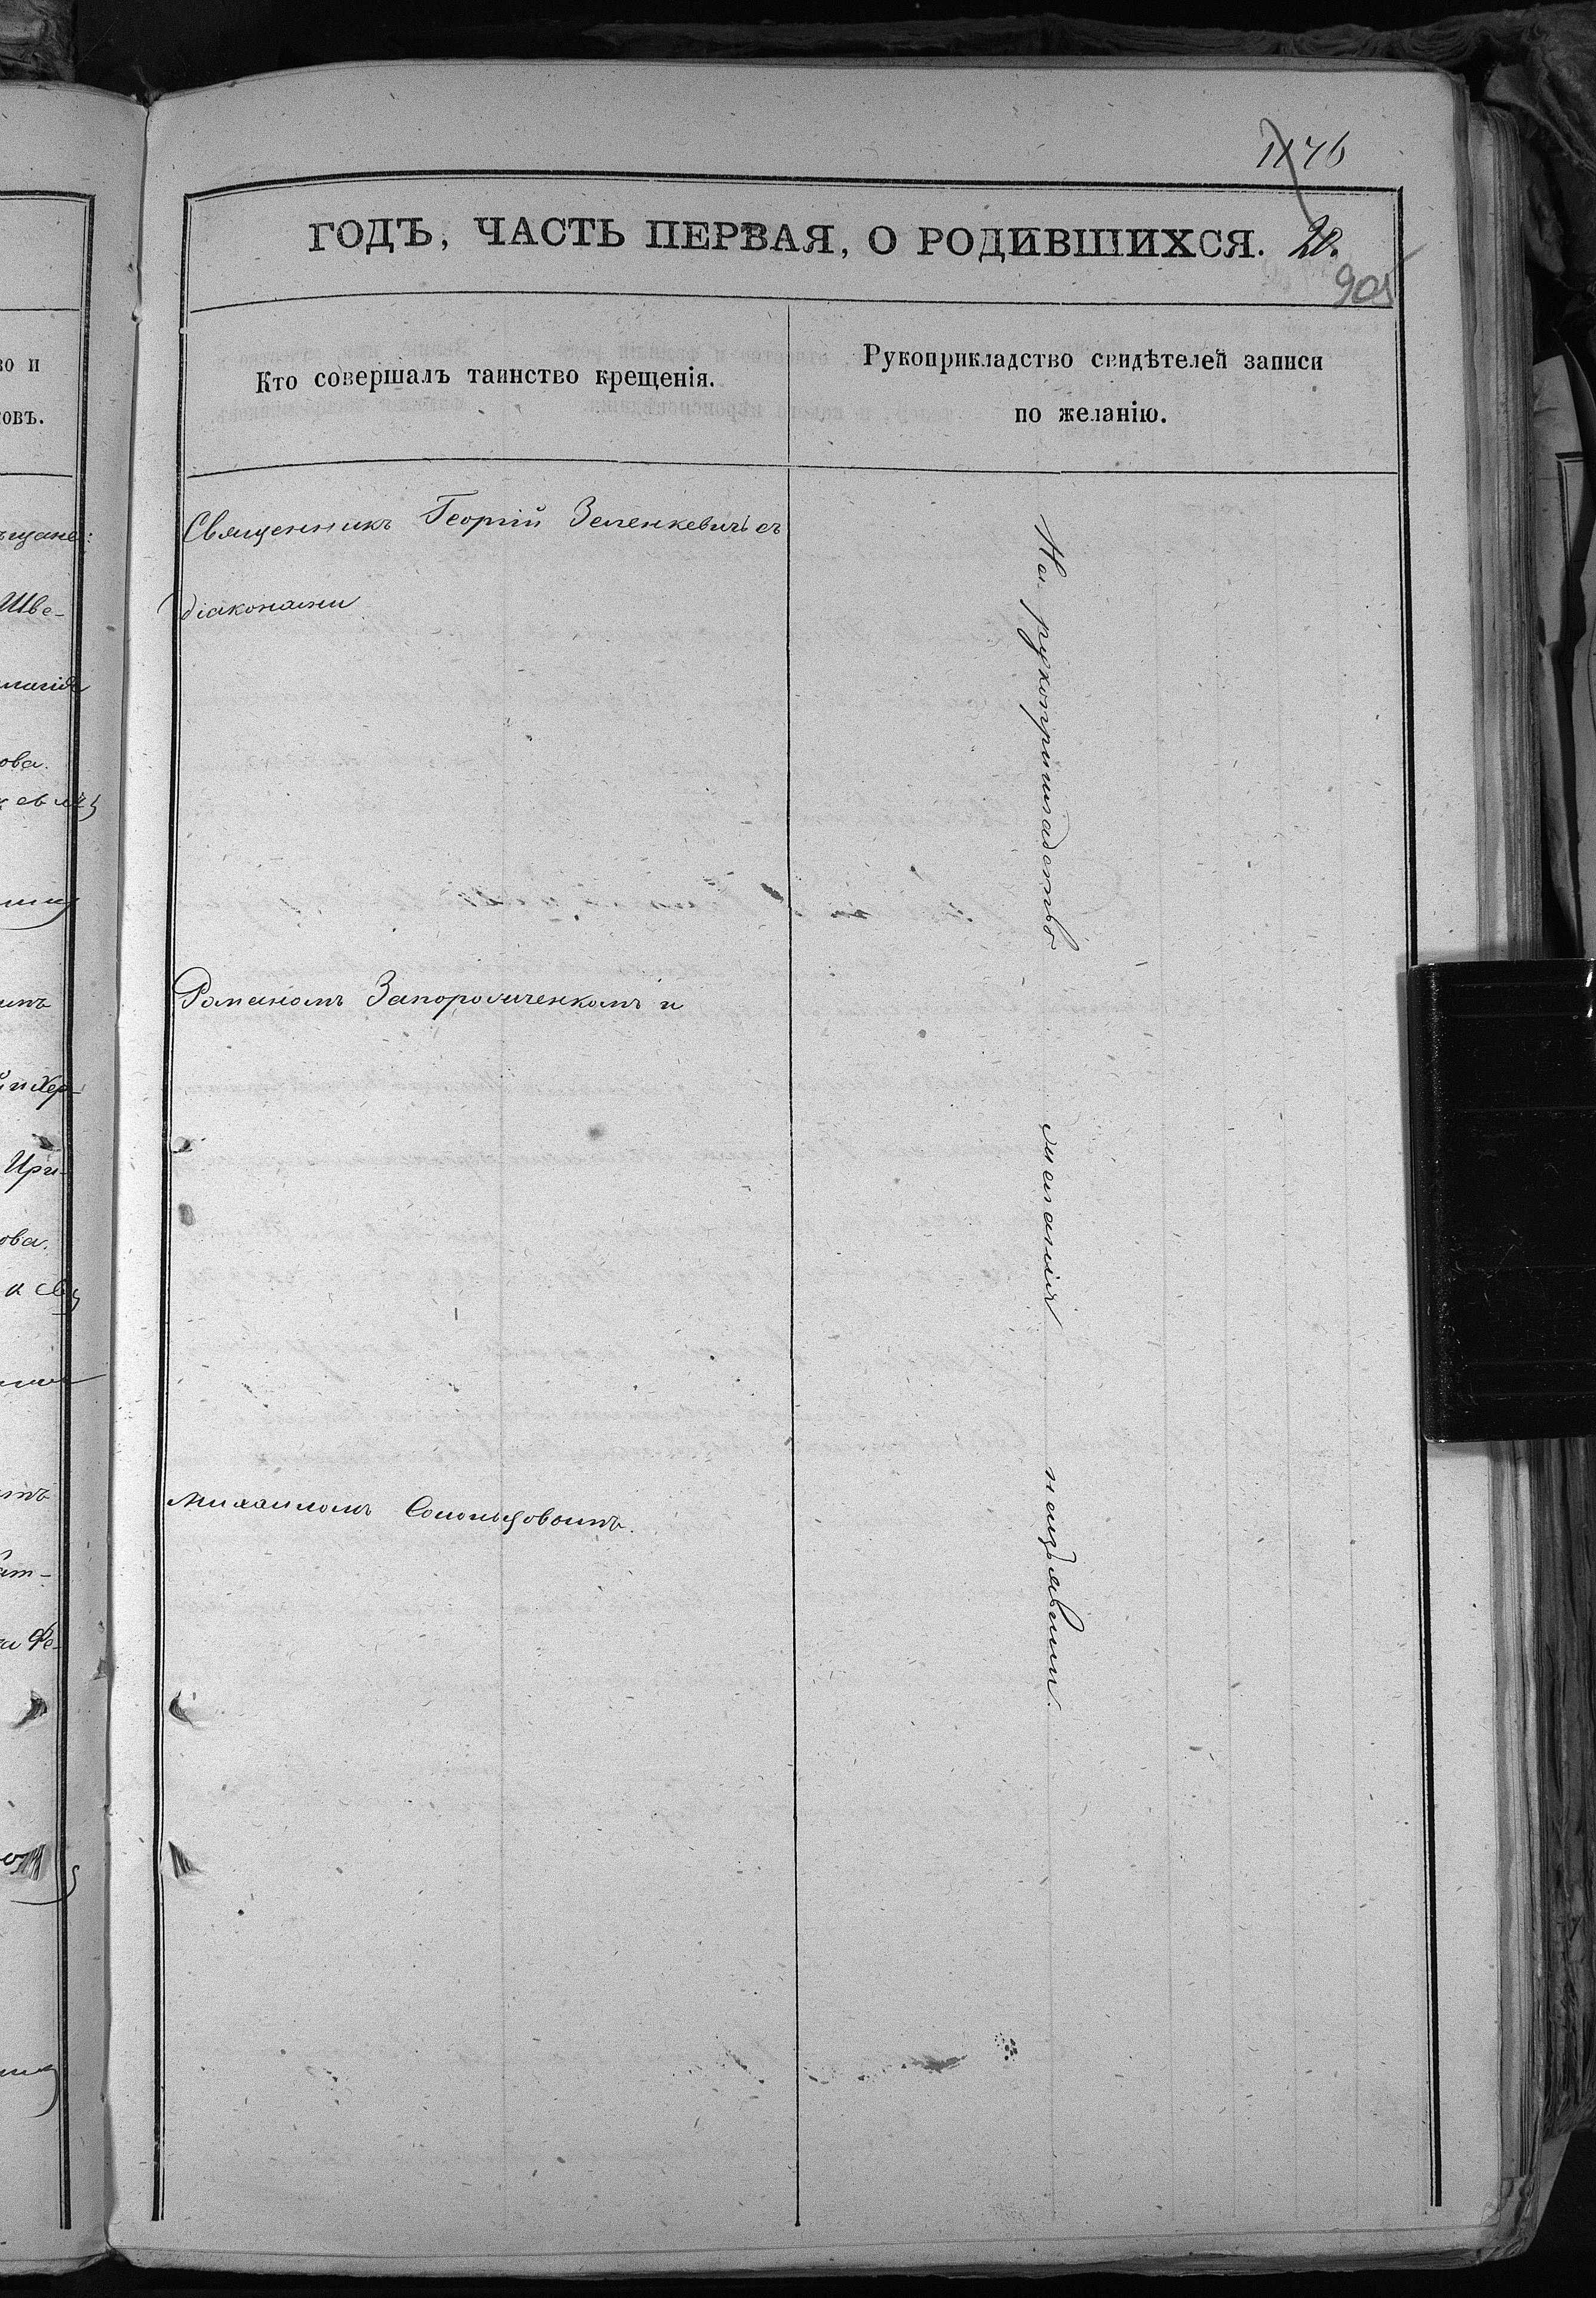 во и
ковъ.
Шве-
ова.
и Хер-
Ири-
ова.
и Фе-
1176
ГОДЪ, ЧАСТЬ ПЕРВАЯ, О РОДИВШИХСЯ. 20.
905
Кто совершалъ таинство крещенія.
Рукоприкладство свидѣтелей записи
по желанію.
Священникъ Георгій Зеленкевичъ съ
діаконами
Романомъ Запорожченкомъ и
Михаиломъ Солонцовымъ.
На рукоприкладство желанія неизъявили.